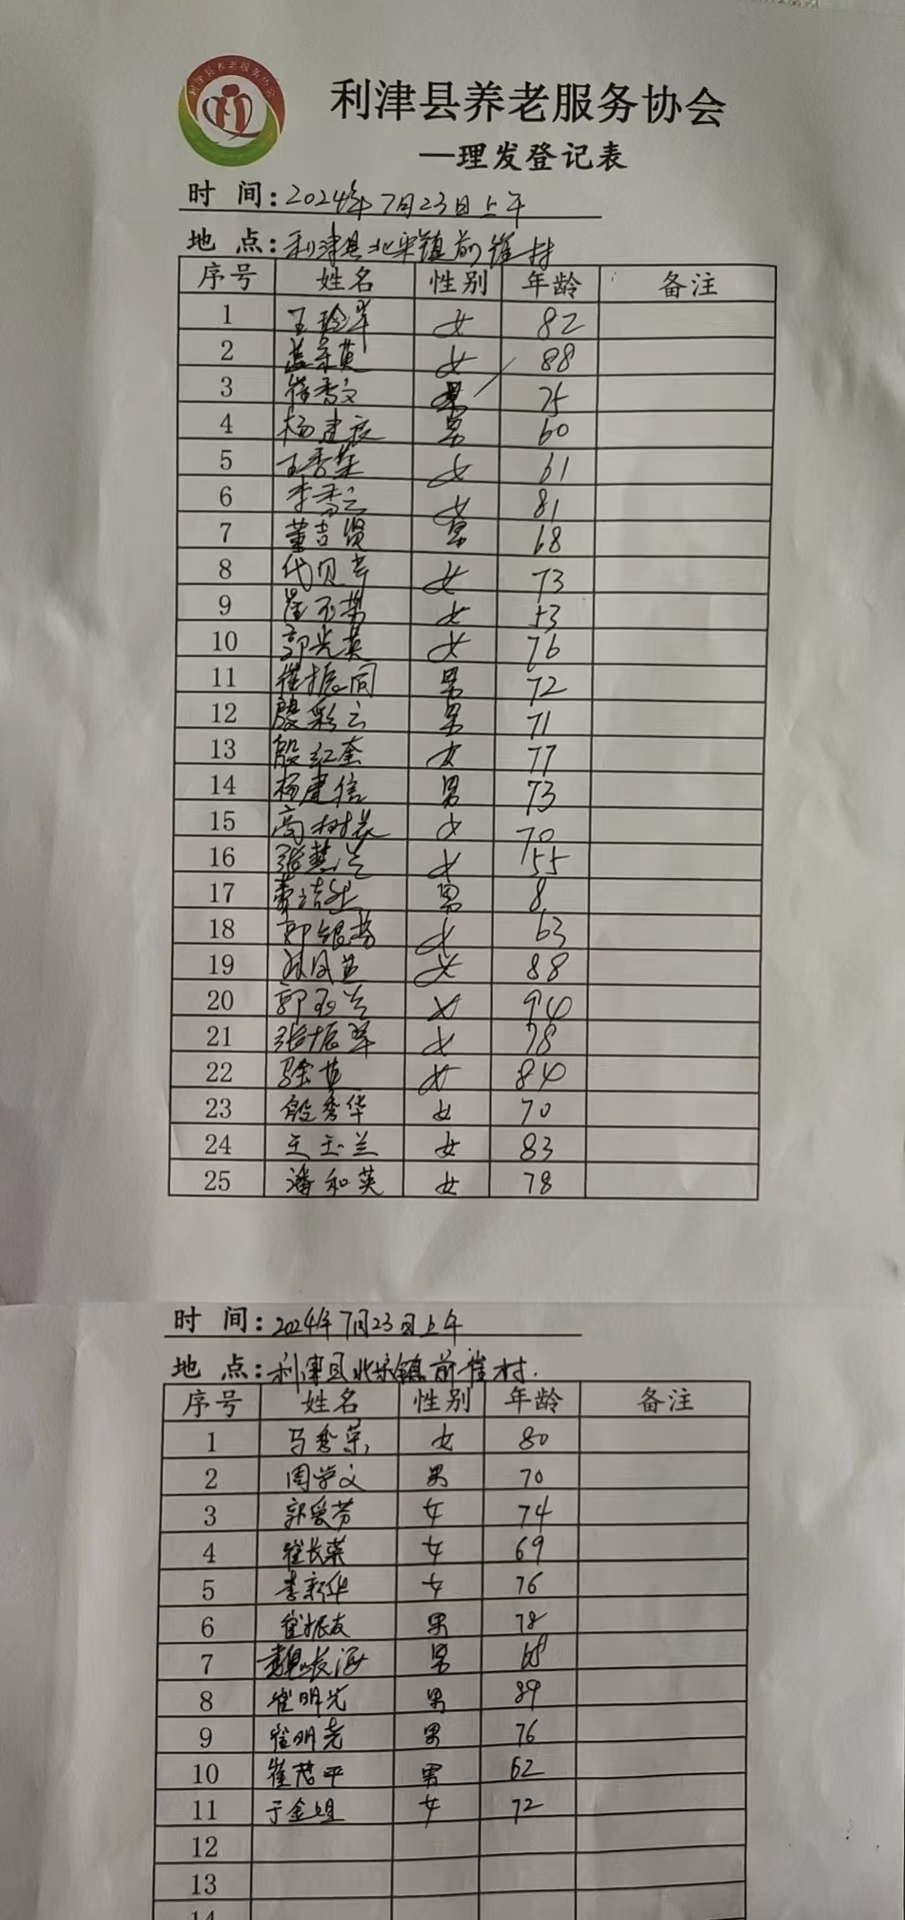 利津县养老服务协会
利津县养老服务协会
—理发登记表
时 间:2024年7月23日上午
地 点:利津县北宋镇前崔村
序号 姓名 性别 年龄 备注
1 王玲翠 女 82
2 盖荣英 女 88
3 崔秀文 男 75
4 杨建辰 男 60
5 王秀荣 女 61
6 李秀云 女 81
7 董吉贤 男 68
8 代贝芹 女 73
9 崔玉芳 女 53
10 郭光英 女 76
11 崔振同 男 72
12 殷彩云 男 71
13 殷红奎 女 77
14 杨建信 男 73
15 高树长 女 70
16 张慧兰 女 55
17 男 8
18 郭银芳 女 63
19 女 88
20 郭玉兰 女 94
21 张振翠 女 78
22 女 84
23 殷秀华 女 70
24 王玉兰 女 83
25 潘和英 女 78
时 间:2024年7月23日上午
地 点:利津县北宋镇前崔村.
序号 姓名 性别 年龄 备注
1 马秀荣 女 80
2 周学文 男 70
3 郭爱芳 女 74
4 崔长荣 女 69
5 李新华 女 76
6 崔振友 男 78
7 魏长海 男 68
8 崔明光 男 89
9 崔明尧 男 76
10 崔茂平 男 62
11 于金姐 女 72
12
13
14